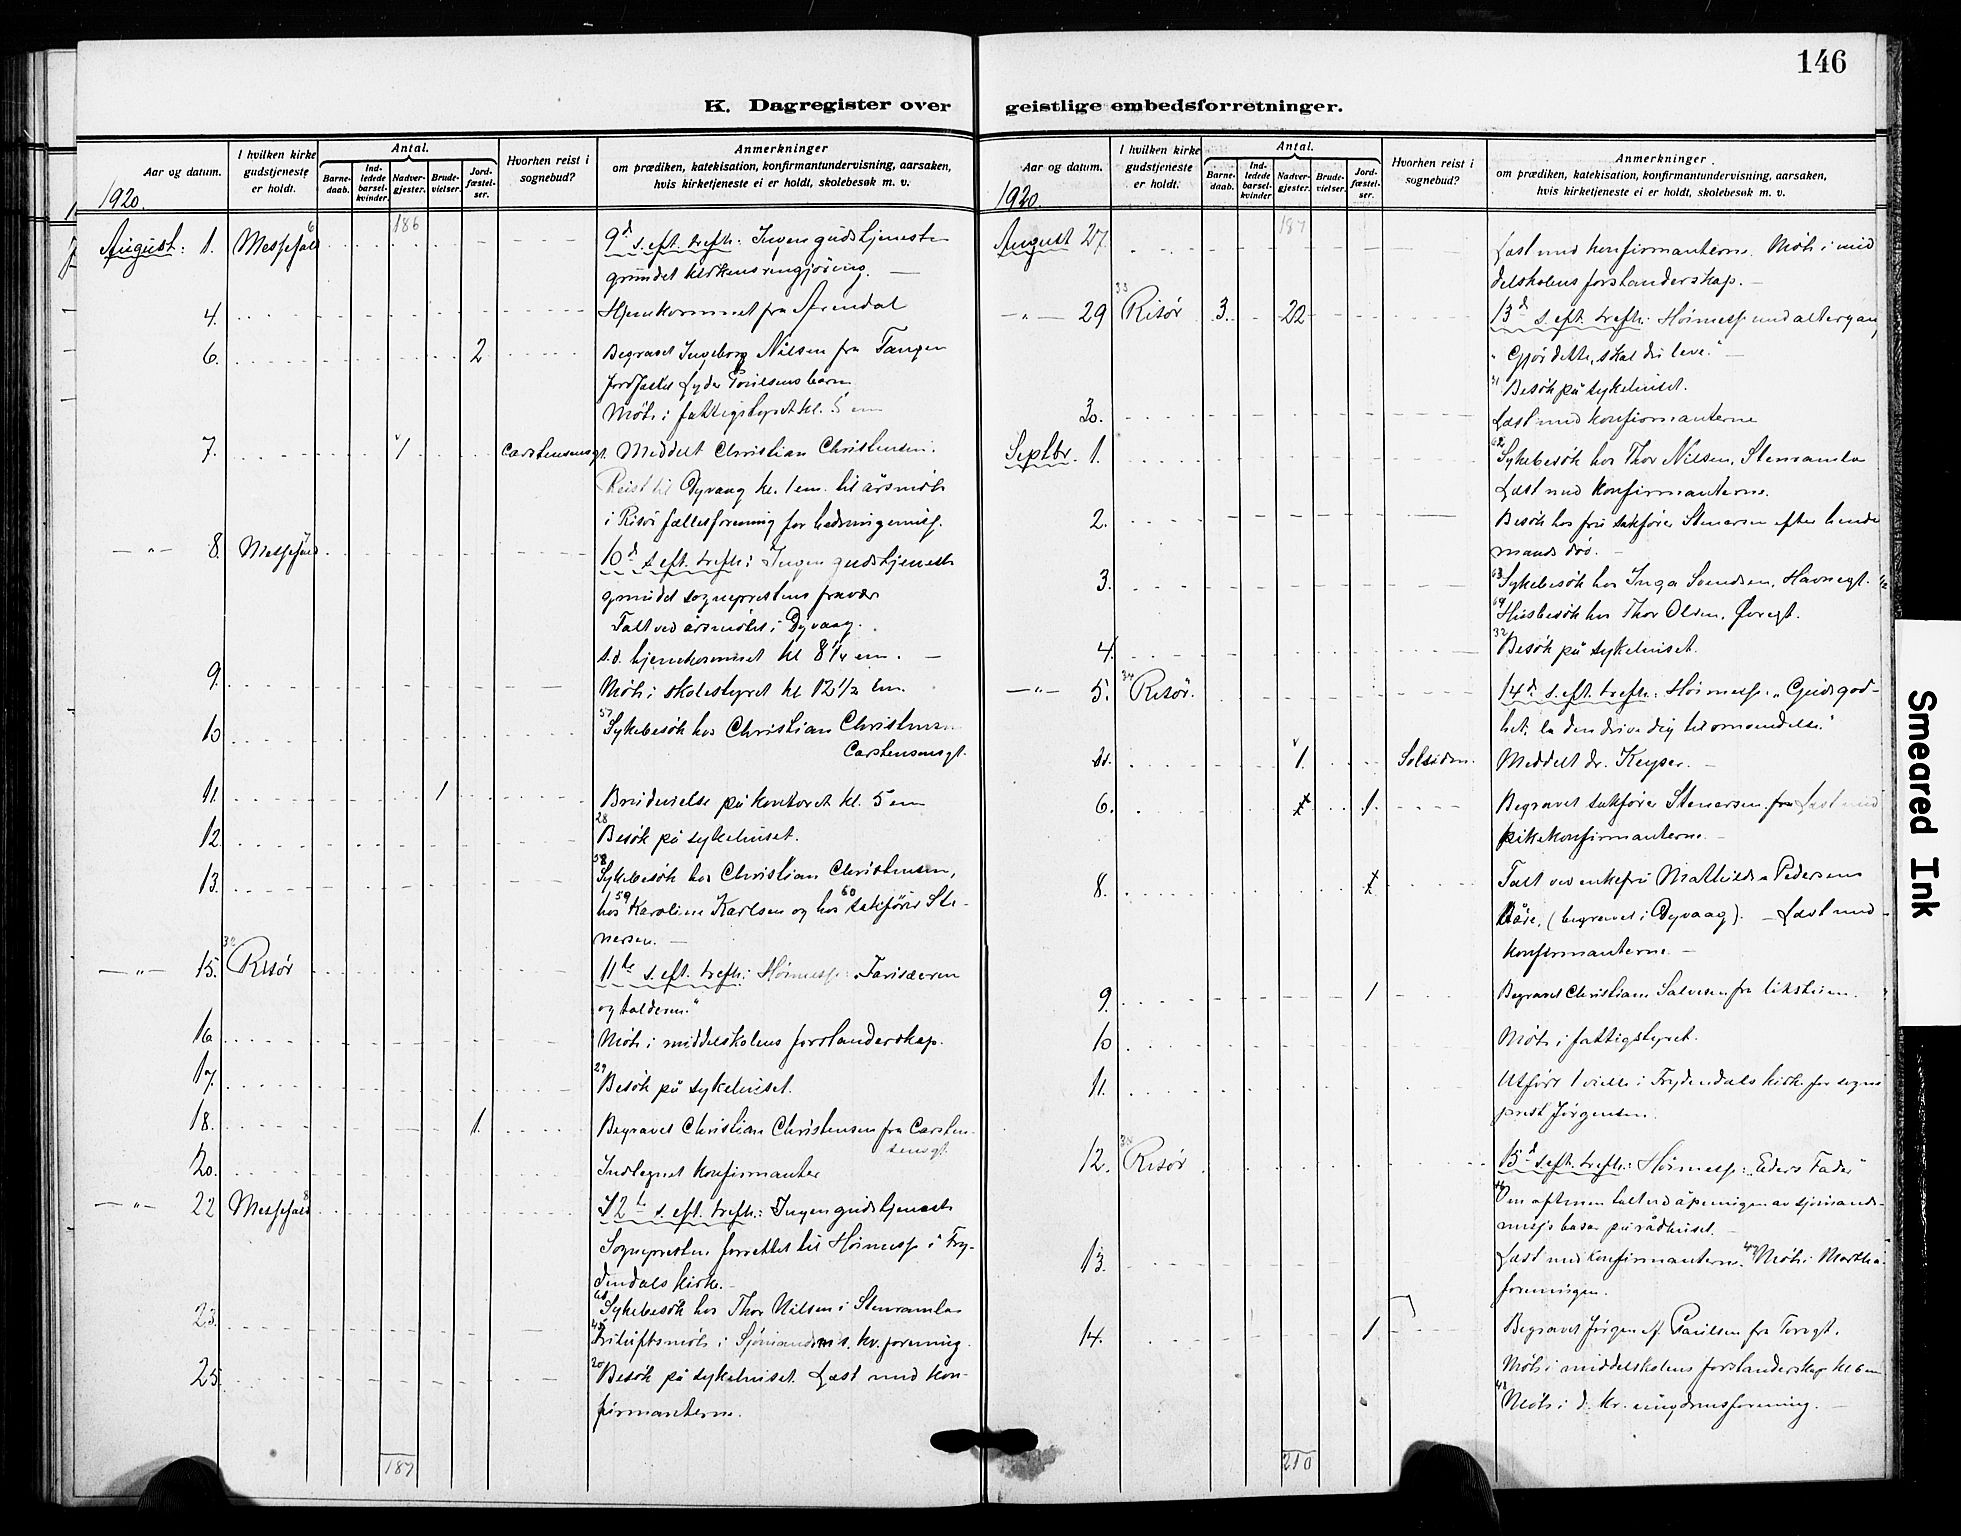 146
K. Dagregister over geistlige embedsforretninger.
Aar og datum.
I hvilken kirke gudstjeneste er holdt.
Antal.
Barne-daab.
Ind-ledede barsel-kvinder.
Nadver-gjester.
Brude-vielser.
Jord-fæstel-ser.
Hvorhen reist i sognebud?
Anmerkninger
om prædiken, katekisation, konfirmantundervisning, aarsaken,
hvis kirketjeneste ei er holdt, skolebesøk m. v.
1920.
186
August: 1. Messefald 6 9d s. eft. trefh: Ingen gudstjeneste
grundet kirkens rengjøring. —
4. Hjemkommet fra Arendal
6. 2 Begravet Ingeborg Nilsen fra Tangen
Jordfæstet Lyder Poulsens barn
Møte i fattigstyret kl. 5 em
7. 1 Carstensensgt. Meddelt Christian Christensen.
Reist til Dyvaag kl. 1 em. til årsmøte
i Risør fællesforening for hedningemisj.
— " — 8. Messefald 7 10d s. eft. trefh: Ingen gudstjeneste
grundet sogneprestens fravær
Talt ved årsmøtet i Dyvaag.
s.d. hjemkommet kl 8 1/4 em. —
9. Møte i skolestyret kl 12 1/2 em.
10 57 Sykebesøk hos Christian Christensen
Carstensensgt.
11. 1 Brudevielse på kontoret kl. 5 em
12. 28 Besøk på sykehuset.
13. 58 Sykebesøk hos Christian Christensen,
hos 59 Karoline Karlsen og hos 60 takfører Ste-
nersen. —
— " — 15. 32 Risør 11te s. eft. trefh: Høimesse: Farisæeren
og tolderen."
16. Møte i middelskolens forstanderskap.
17. 29 Besøk på sykehuset.
18. 1. Begravet Christian Christensen fra Carsten-
sensgt.
20. Indtegnet konfirmanter
— " — 22 Messefald 8 12te s. eft. trefh: Ingen gudstjeneste
Sognepresten forrettet til Høimesse i Fry-
dendals kirke. -
23. 61 Sykebesøk hos Thor Nilsen i Stenramla
45 Friluftsmøte i Sjømandsmis. kv. forening.
25. Besøk på sykehuset. Læst med kon-
firmanterne.
187
Aar og datum.
I hvilken kirke gudstjeneste er holdt.
Antal.
Barne-daab.
Ind-ledede barsel-kvinder.
Nadver-gjester.
Brude-vielser.
Jord-fæstel-ser.
Hvorhen reist i sognebud?
Anmerkninger.
om prædiken, katekisation, konfirmantundervisning, aarsaken,
hvis kirketjeneste ei er holdt, skolebesøk m. v.
1920.
187
August 27. Læst med konfirmanterne. Møte i mid
delskolens forstanderskap. —
— " — 29 33 Risør 3. 22 13d s. eft. trefh: Høimesse med altergang
"Gjør dette, skal du leve." —
31 Besøk på sykehuset.
30. Læst med konfirmanterne
Septbr. 1. 62 Sykebesøk hos Thor Nilsen, Stenramla
Læst med konfirmanterne.
2. Besøk hos fru takfører Stenersen efter hendes
mands død. —
3. 63 Sykebesøk hos Inga Svendsen, Havnegt.
64 Husbesøk hos Thor Olsen, Øvregt.
4. 32 Besøk på sykehuset.
— " — 5. 34 Risør. 14d s. eft. trefh: Høimesse: "Guds god-
het, la den drive dig til omvendelse."
s.d. 1. Solsiden. Meddelt dr. Keyser. —
6. 1. Begravet takfører Stenersen. fra Læst med
pikekonfirmanterne. —
8. Talt ved enkefru Mathilde Pedersens
Båre, (begravet i Dyvaag). — Læst med
konfirmanterne. —
9. 1 Begravet Christiane Salvesen fra likstuen.
10 Møte i fattigstyret.
11. Utført 1 vielse i Frydendals kirke for sogne
prest Jørgensen.
12. Risør 15d s. eft. trefh: Høimesse: "Eders Fader"
Om aftenen talt ved åpningen av sjømands-
misjs basar på rådhuset. —
13. Læst med konfirmanterne. 47 Møte i Martha-
foreningen.
14. 1 Begravet Jørgen A. Paulsen fra Torvgt.
Møte i middelskolens forstanderskap kl 6 em
48 Møte i d. kr. ungdomsforening. —
210
Smeared Ink